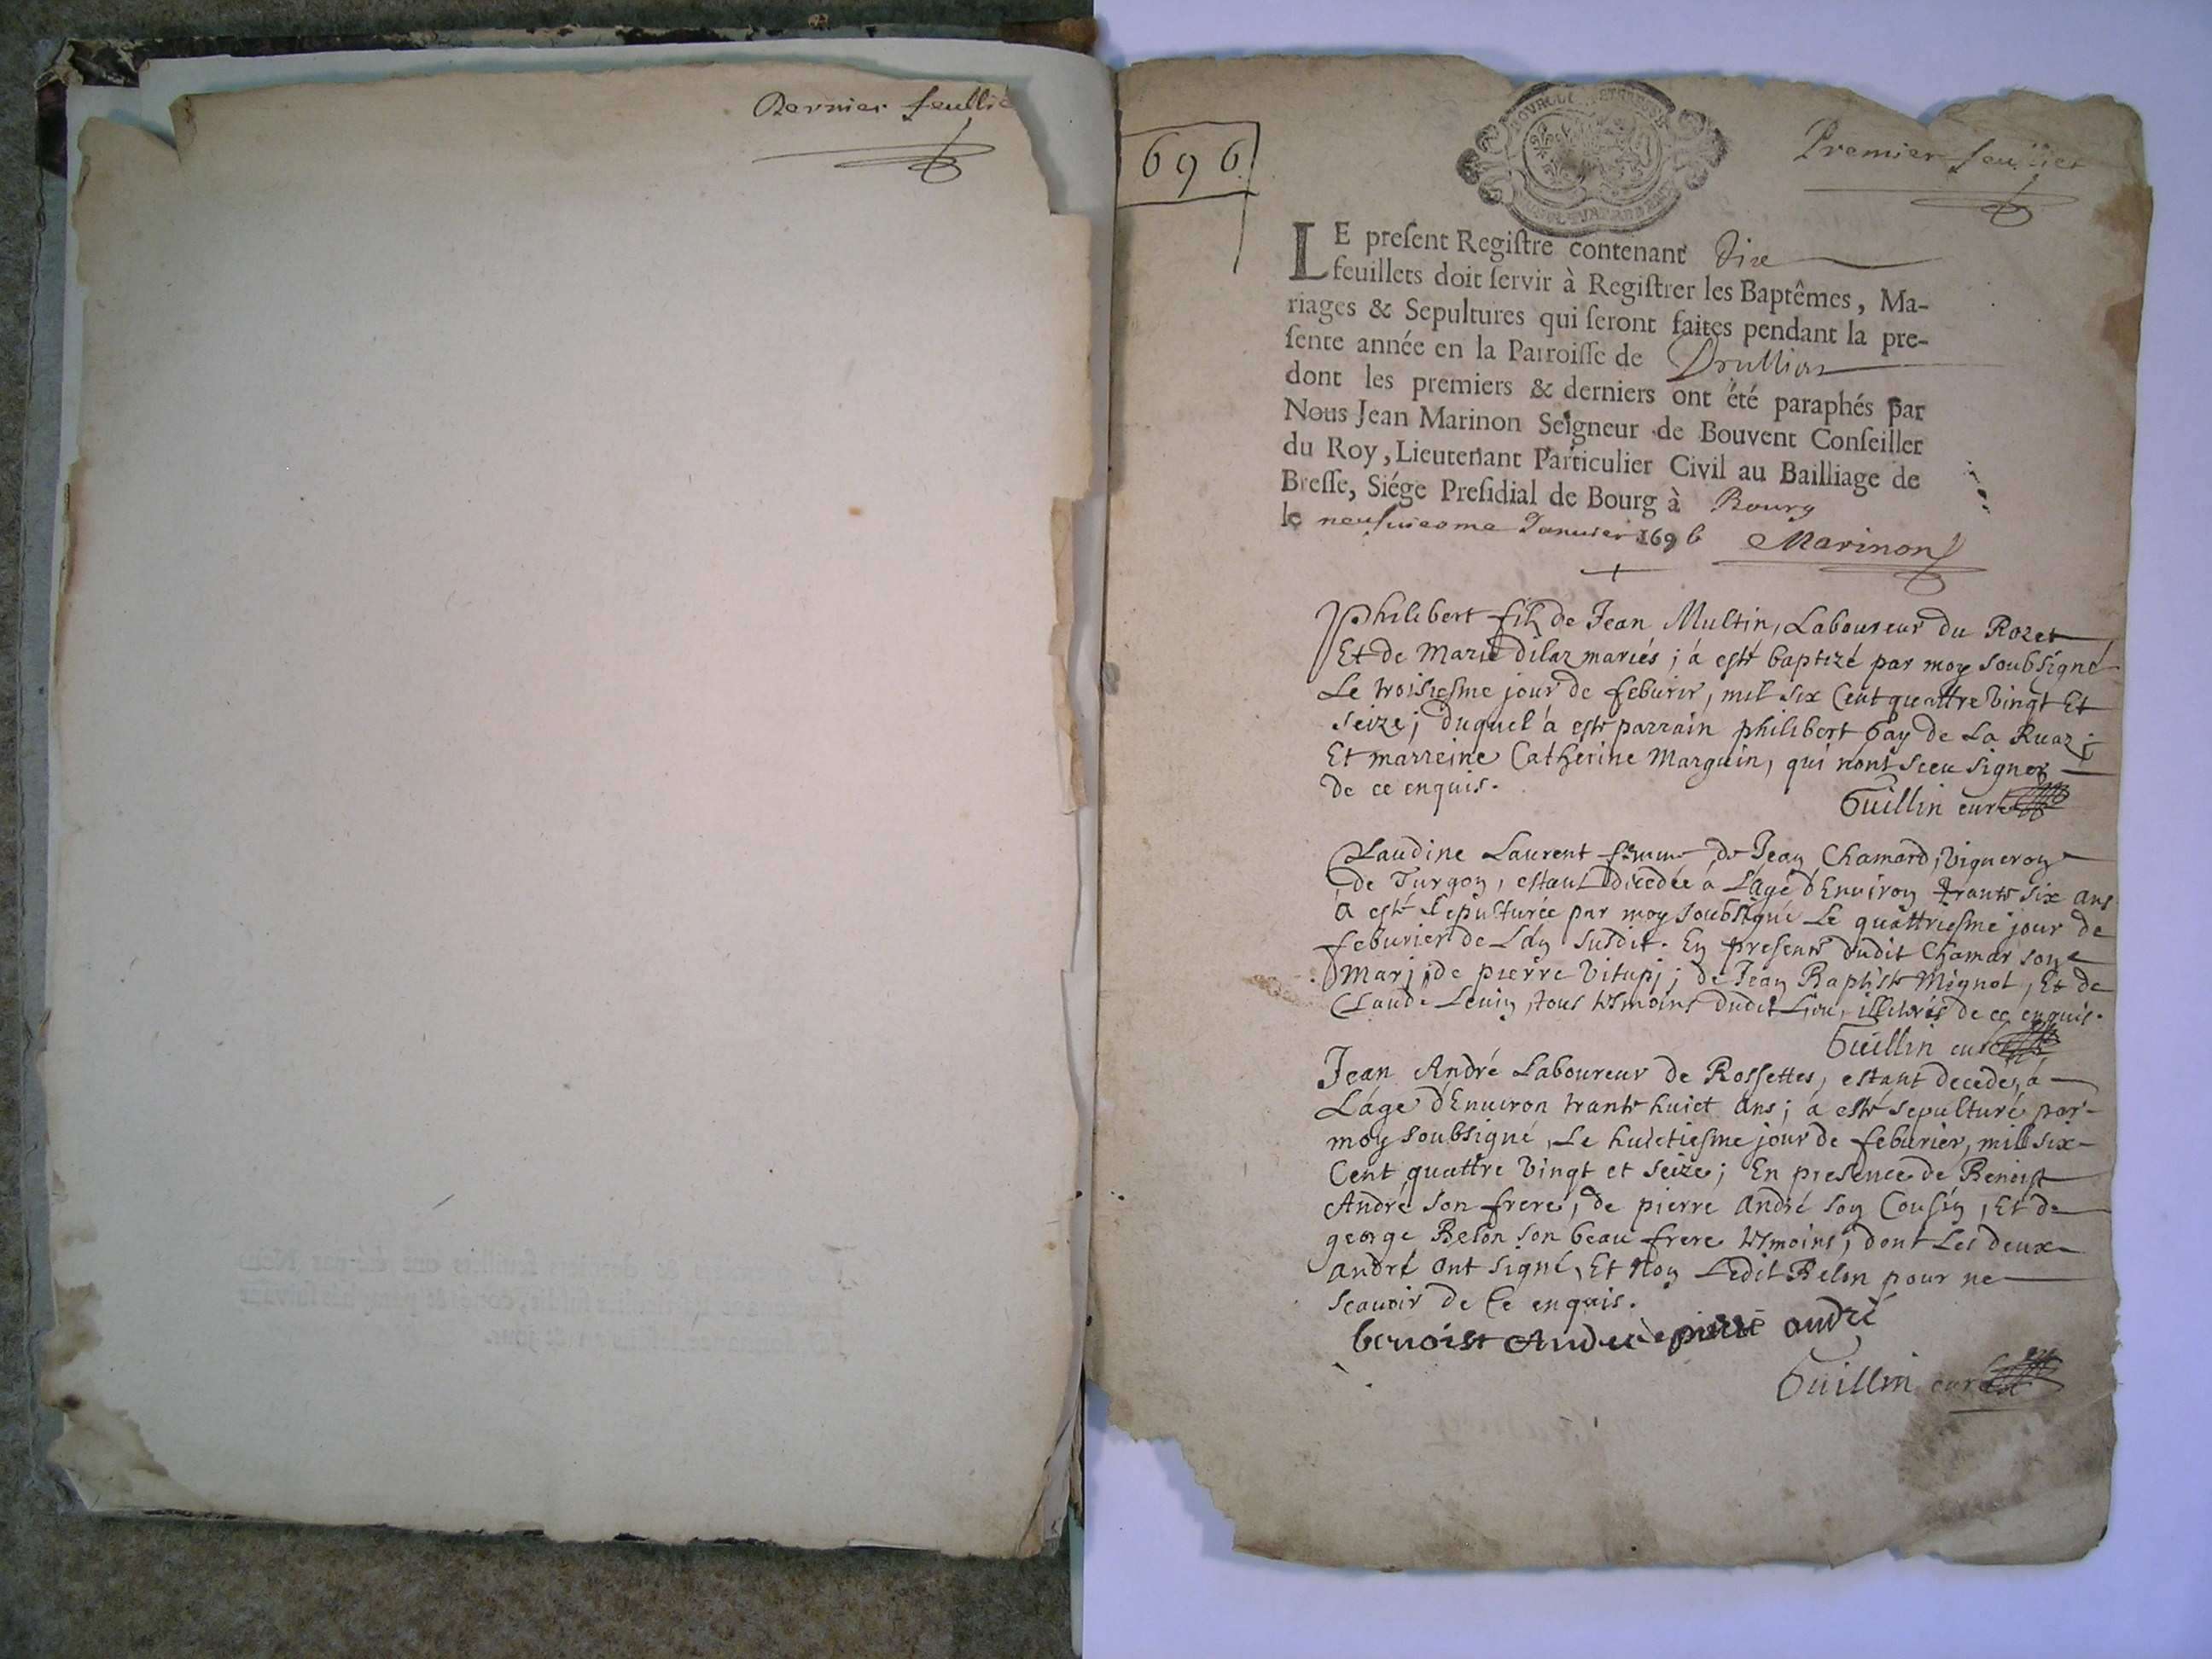 Dernier feullie
696
Premier feullet
LE preſent Regiſtre contenant Dix
feuillets doit ſervir à Regiſtrer les Baptêmes, Ma-
riages & Sepultures qui ſeront faites pendant la pre-
ſente année en la Parroiſſe de Drullias
dont les premiers & derniers ont été paraphés par
Nous Jean Marinon Seigneur de Bouvent Conſeiller
du Roy, Lieutenant Particulier Civil au Bailliage de
Breſſe, Siége Preſidial de Bourg à Bourg
le neufuieome Januier 1696 Marinon
Philibert filz de Jean Multin, Laboureur du Rozet
Et de Marie dilaz mariés ; á esté baptizé par moy soubsigné
Le troisiesme jour de feburir, mil six Cent quattre vingt Et
seize ; duquel á esté parrain philibert Gay de La Ruaz ;
Et marreine Catherine Marguin, qui n'ont sceu signer
de ce enquis.
Guillin curé
Claudine Laurent femme de Jean Chamard, vigneron
de Turgon, estant décedée a L'agé d'Enuiron trante six ans
á esté sepulturée par moy soubsigné Le quattriesme jour de
feburier de L'an susdit. En presente dudit Chamar son
Mari ; de pierre Vitupi ; de Jean Baptiste Mignot, Et de
Claude Leuin, tous tesmoins dudit Lieu, illitérés de ce enquis.
Guillin curé
Jean André Laboureur de Rossettes, estant decedés, á
L'áge d'Enuiron trante huict ans ; á esté sepulturé par
moy soubsigné, Le huictiesme jour de feburier, mil six
Cent quattre vingt et seize ; En presence de Benoist
André son frere, de pierre André son Cousin, Et de
george Belon son beau frere tesmoins, dont Les deux
André ont signé, Et non Ledit Belon pour ne
scauoir de Ce enquis.
benoist André pierre andré
Guillin curé